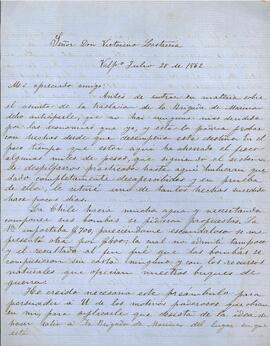 Señor Don Victorino Lastarria
Valpº Julio 28 de 1862
Mi apreciado amigo:
Antes de entrar en materia sobre
el asunto de la traslacion de la Brigada de Marina
debo anticiparle, que no hai ninguno mas decidido
por las economias que yo, y esto lo podria probar
con hechos desde que desempeño este destino en el
poco tiempo que estoi aqui ha ahorrado el fisco
algunos miles de pesos, que siguiendo el sistema
de despilfarros practicado hasta aqui hubieran que
dado completamente desapercibidos y en prueba
de ello, le citaré uno de tantos hechos sucedido
hace pocos dias.
La Chile hacia mucha agua y necesitando
componer sus bombas se pidieron propuestas. La
1ª importaba $700, pareciendome escandaloso se me
presentó otra por $600, la mal no admití tampoco
y el resultado al fin fué que las bombas se
compusieron sin costo ninguno y con los recursos
naturales que ofrecian nuestros buques de
guerra.
He creido necesario este preambulo para
persuadir a U de los motivos poderosos que obran
en mi, para suplicarle que desista de la idea de
hacer salir a la Brigada de Marina del lugar en que
está.